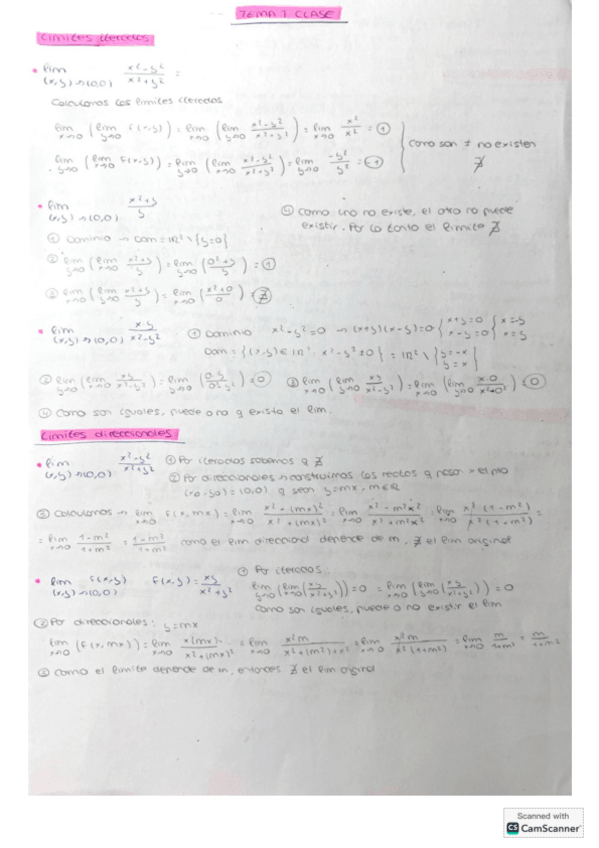 TEMA 1 CLASE
Limites iterados
• lim (x,y)→(0,0) x²-y²/x²+y² =
Calculamos los limites iterados
lim x→0 (lim y→0 f(x,y)) = lim x→0 (lim y→0 x²-y²/x²+y²) = lim x→0 x²/x² = 1
lim y→0 (lim x→0 f(x,y)) = lim y→0 (lim x→0 x²-y²/x²+y²) = lim y→0 -y²/y² = -1
como son ≠ no existen
∄
• lim (x,y)→(0,0) x²+y/y
① Dominio → Dom = ℝ² \ {y=0}
② lim y→0 (lim x→0 x²+y/y) = lim y→0 (0²+y/y) = 1
③ lim x→0 (lim y→0 x²+y/y) = lim x→0 (x²+0/0) = ∄
④ Como uno no existe, el otro no puede
existir. Por lo tanto el limite ∄
• lim (x,y)→(0,0) xy/x²-y² ① Dominio x²-y²=0 → (x+y)(x-y)=0 { x+y=0 x-y=0 { x=-y x=y
Dom = {(x,y)∈ℝ², x²-y²≠0} = ℝ² \ {y=-x y=x}
② lim y→0 (lim x→0 xy/x²-y²) = lim y→0 (0·y/0²-y²) = 0 ③ lim x→0 (lim y→0 xy/x²-y²) = lim x→0 (x·0/x²-0²) = 0
④ Como son iguales, puede o no q exista el lim.
Limites direccionales
• lim (x,y)→(0,0) x²-y²/x²+y² ① Por iterados sabemos q ∄
② Por direccionales → construimos las rectas q pasan x el pto
(x0,y0)=(0,0) q sean y=mx, m∈ℝ
③ Calculamos → lim x→0 f(x,mx) = lim x→0 x²-(mx)²/x²+(mx)² = lim x→0 x²-m²x²/x²+m²x² = lim x→0 x²(1-m²)/x²(1+m²) =
= lim x→0 1-m²/1+m² = 1-m²/1+m² como el lim direccional depende de m, ∄ el lim original
• lim (x,y)→(0,0) f(x,y) f(x,y) = xy/x²+y² ① Por iterados:
lim y→0 (lim x→0 (xy/x²+y²)) = 0 = lim x→0 (lim y→0 (xy/x²+y²)) = 0
Como son iguales, puede o no existir el lim
② Por direccionales: y=mx
lim x→0 (f(x,mx)) = lim x→0 x(mx)/x²+(mx)² = lim x→0 x²m/x²+(m²)·x² = lim x→0 x²m/x²(1+m²) = lim x→0 m/1+m² = m/1+m²
③ como el limite depende de m, entonces ∄ el lim original
Scanned with
CS CamScanner